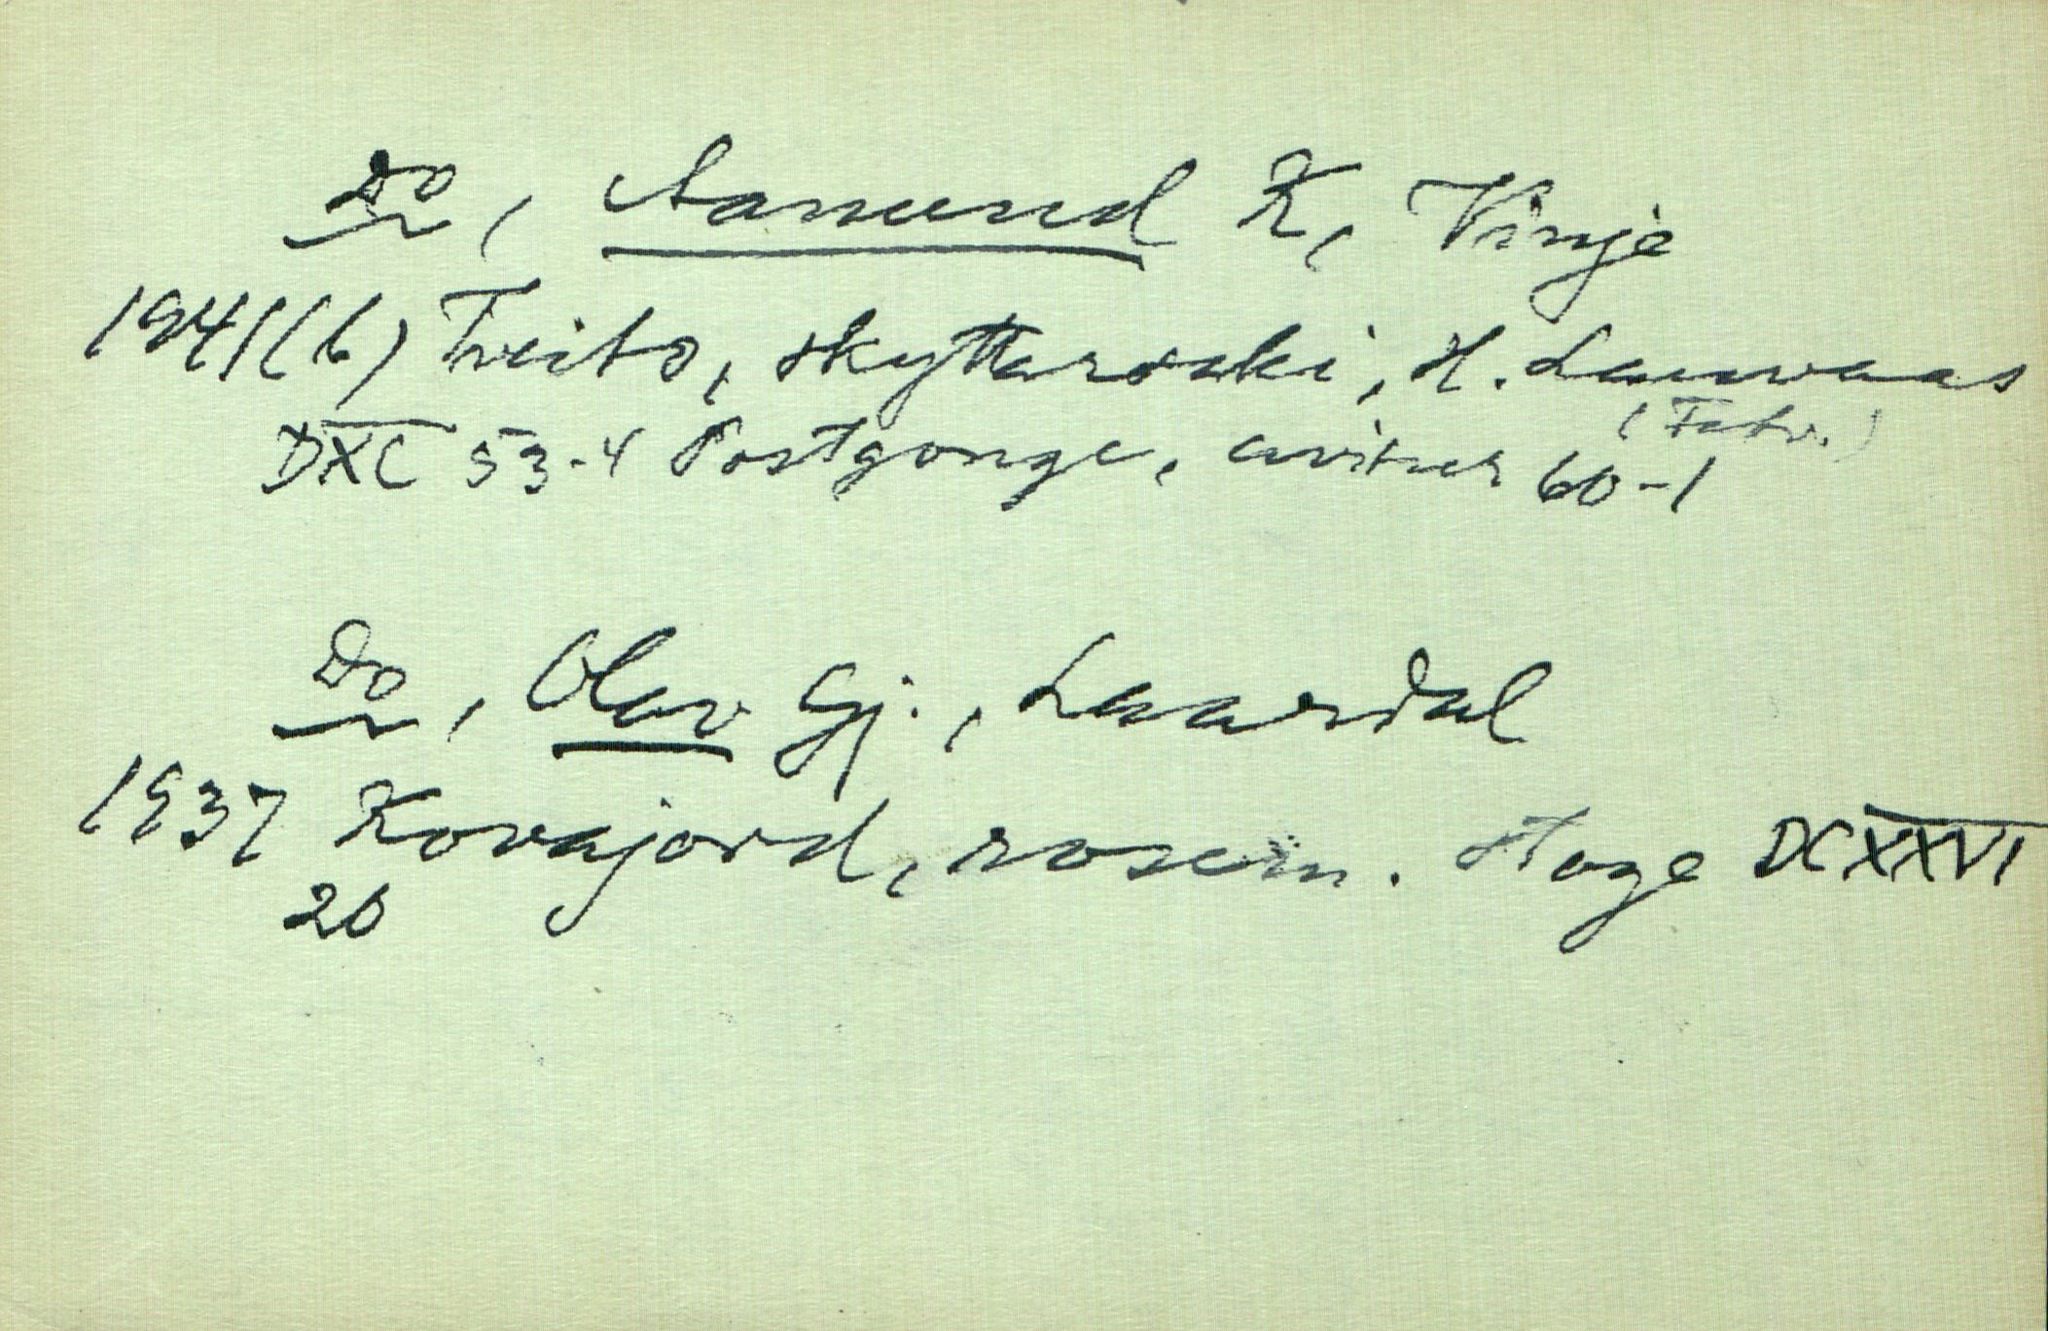 Do, Aamund K, Vinje
1941(6) Tveito, skyttarsaki, H. Lauvvaas
(Fatv.)
DXC 53-4 Postgonge, avisur 60-1
Do, Olav Gj., Laardal
1937 Kovajord, rosem. Hoge DCXXVI
26